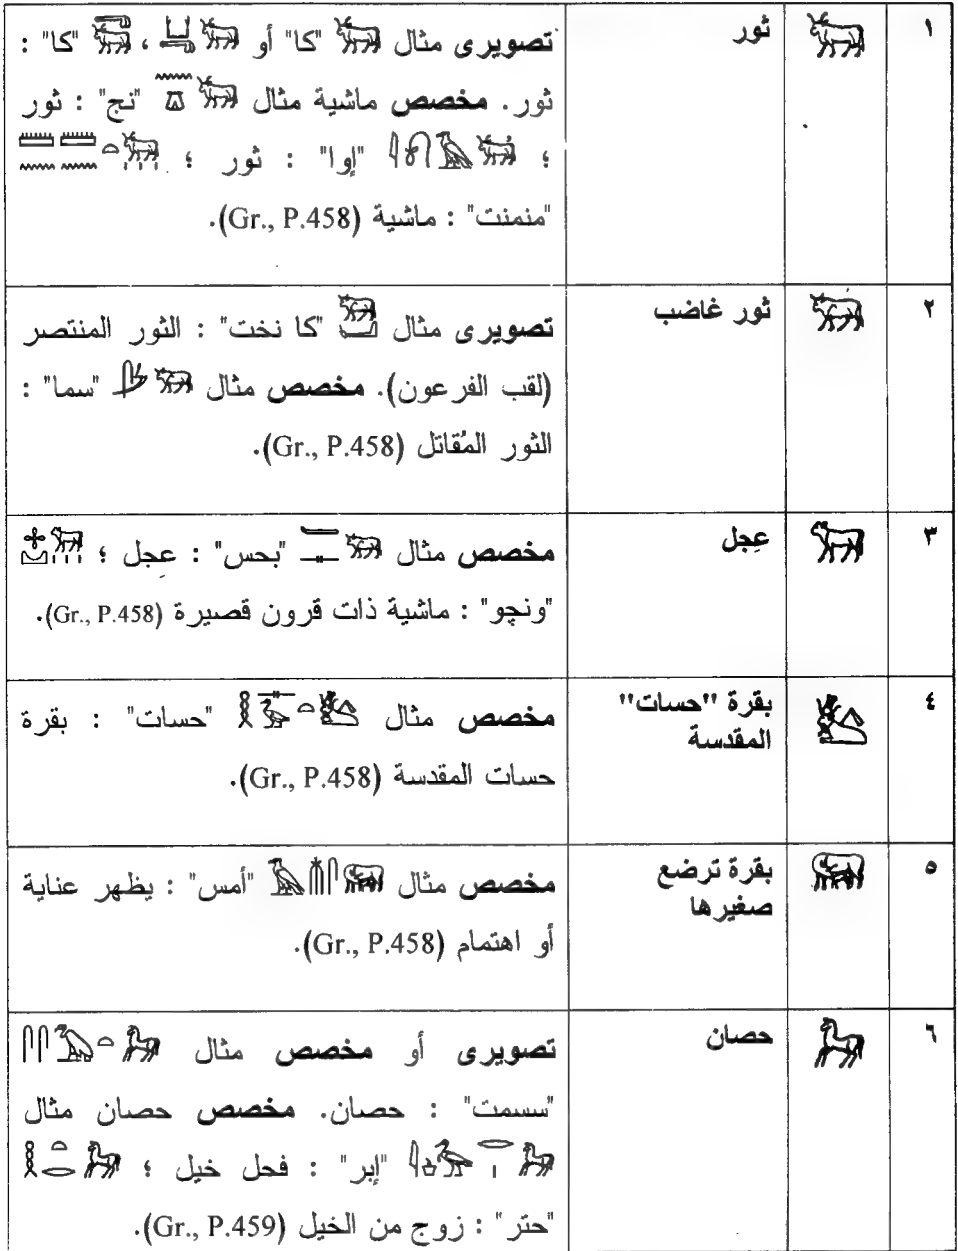 ١ ثور تصويرى مثال 𓃒 "كا" أو 𓂓𓃒 ، 𓃒 "كا" :
ثور. مخصص ماشية مثال 𓈖𓎼𓃒 "نج" : ثور
؛ 𓇋𓍯𓄿𓃒 "إوا" : ثور ؛ 𓏠𓈖𓏠𓈖𓏏𓃒𓏥
"منمنت" : ماشية (Gr., P.458).
٢ ثور غاضب تصويرى مثال "كا نخت" : الثور المنتصر
(لقب الفرعون). مخصص مثال "سما" :
الثور المُقاتل (Gr., P.458).
٣ عِجل مخصص مثال "بحس" : عجل ؛
"ونچو" : ماشية ذات قرون قصيرة (Gr., P.458).
٤ بقرة "حسات" مخصص مثال "حسات" : بقرة
المقدسة حسات المقدسة (Gr., P.458).
٥ بقرة ترضع مخصص مثال "أمس" : يظهر عناية
صغيرها أو اهتمام (Gr., P.458).
٦ حصان تصويرى أو مخصص مثال
"سسمت" : حصان. مخصص حصان مثال
"إبر" : فحل خيل ؛
"حتر" : زوج من الخيل (Gr., P.459).